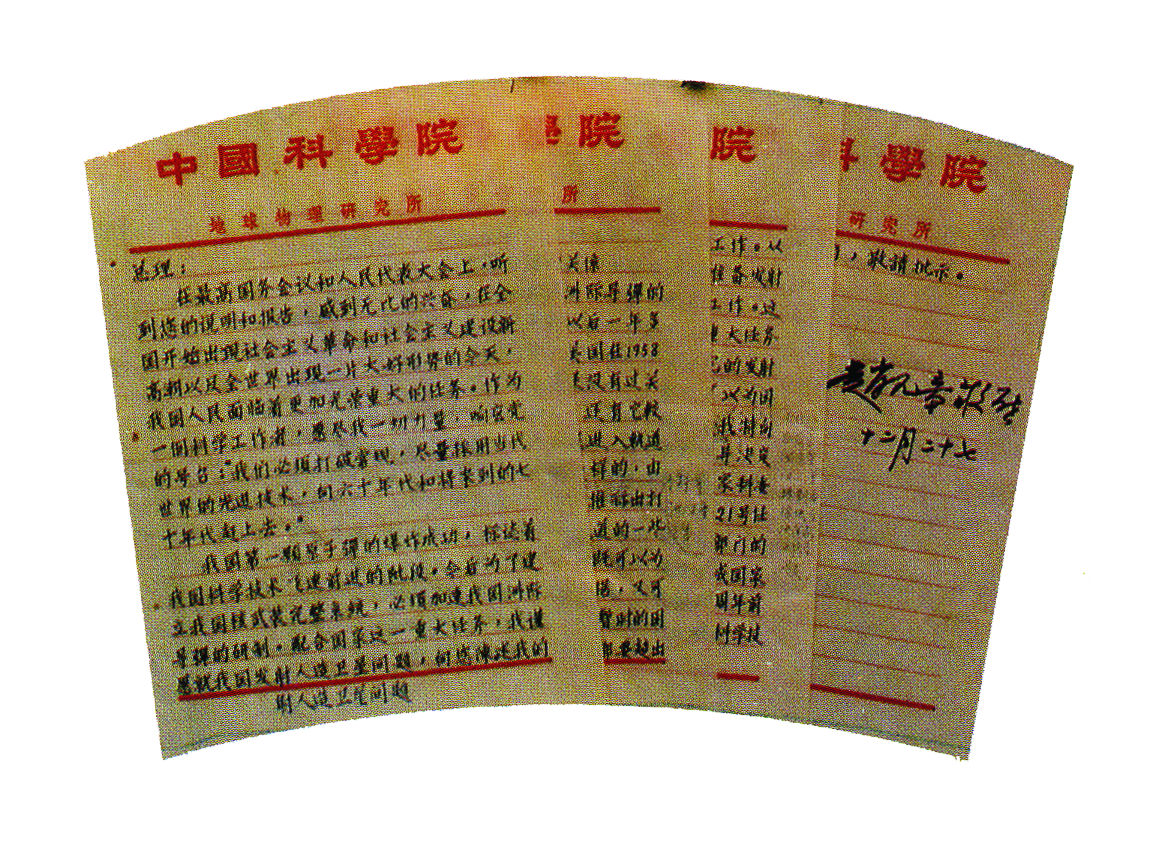 中國科學院
地球物理研究所
总理：
在最高国务会议和人民代表大会上，听
到您的说明和报告，感到无比的兴奋，在全
国开始出现社会主义革命和社会主义建设新
高潮以及全世界出现一片大好形势的今天，
我国人民面临着更加光荣重大的任务。作为
一个科学工作者，愿尽我一切力量，响应党
的号召："我们必须打破常规，尽量采用当代
世界的先进技术，向六十年代和将来到的七
十年代赶上去。"
我国第一颗原子弹的爆炸成功，标志着
我国科学技术飞速前进的阶段。今后为了建
立我国核武装完整系统，必须加速我国洲际
导弹的研制。配合国家这一重大任务，我谨
愿就我国发射人造卫星问题，向您陈述我的
射人造卫星问题
學院
所
关系
洲际导弹的
以后一年多
美国在1958
没有过关
还有它较
进入轨道
样的，由
推标出打
进的一些
既可以为
据，又可
暂时的困
要起出
院
工作。从
准备发射
工作。这
重大任务
它的发射
以为国
我特别
并决定
家科委
21号任
部门的
我国第
周年前
科学技
科學院
研究所
，敬请批示。
赵九章敬启
十二月二十七